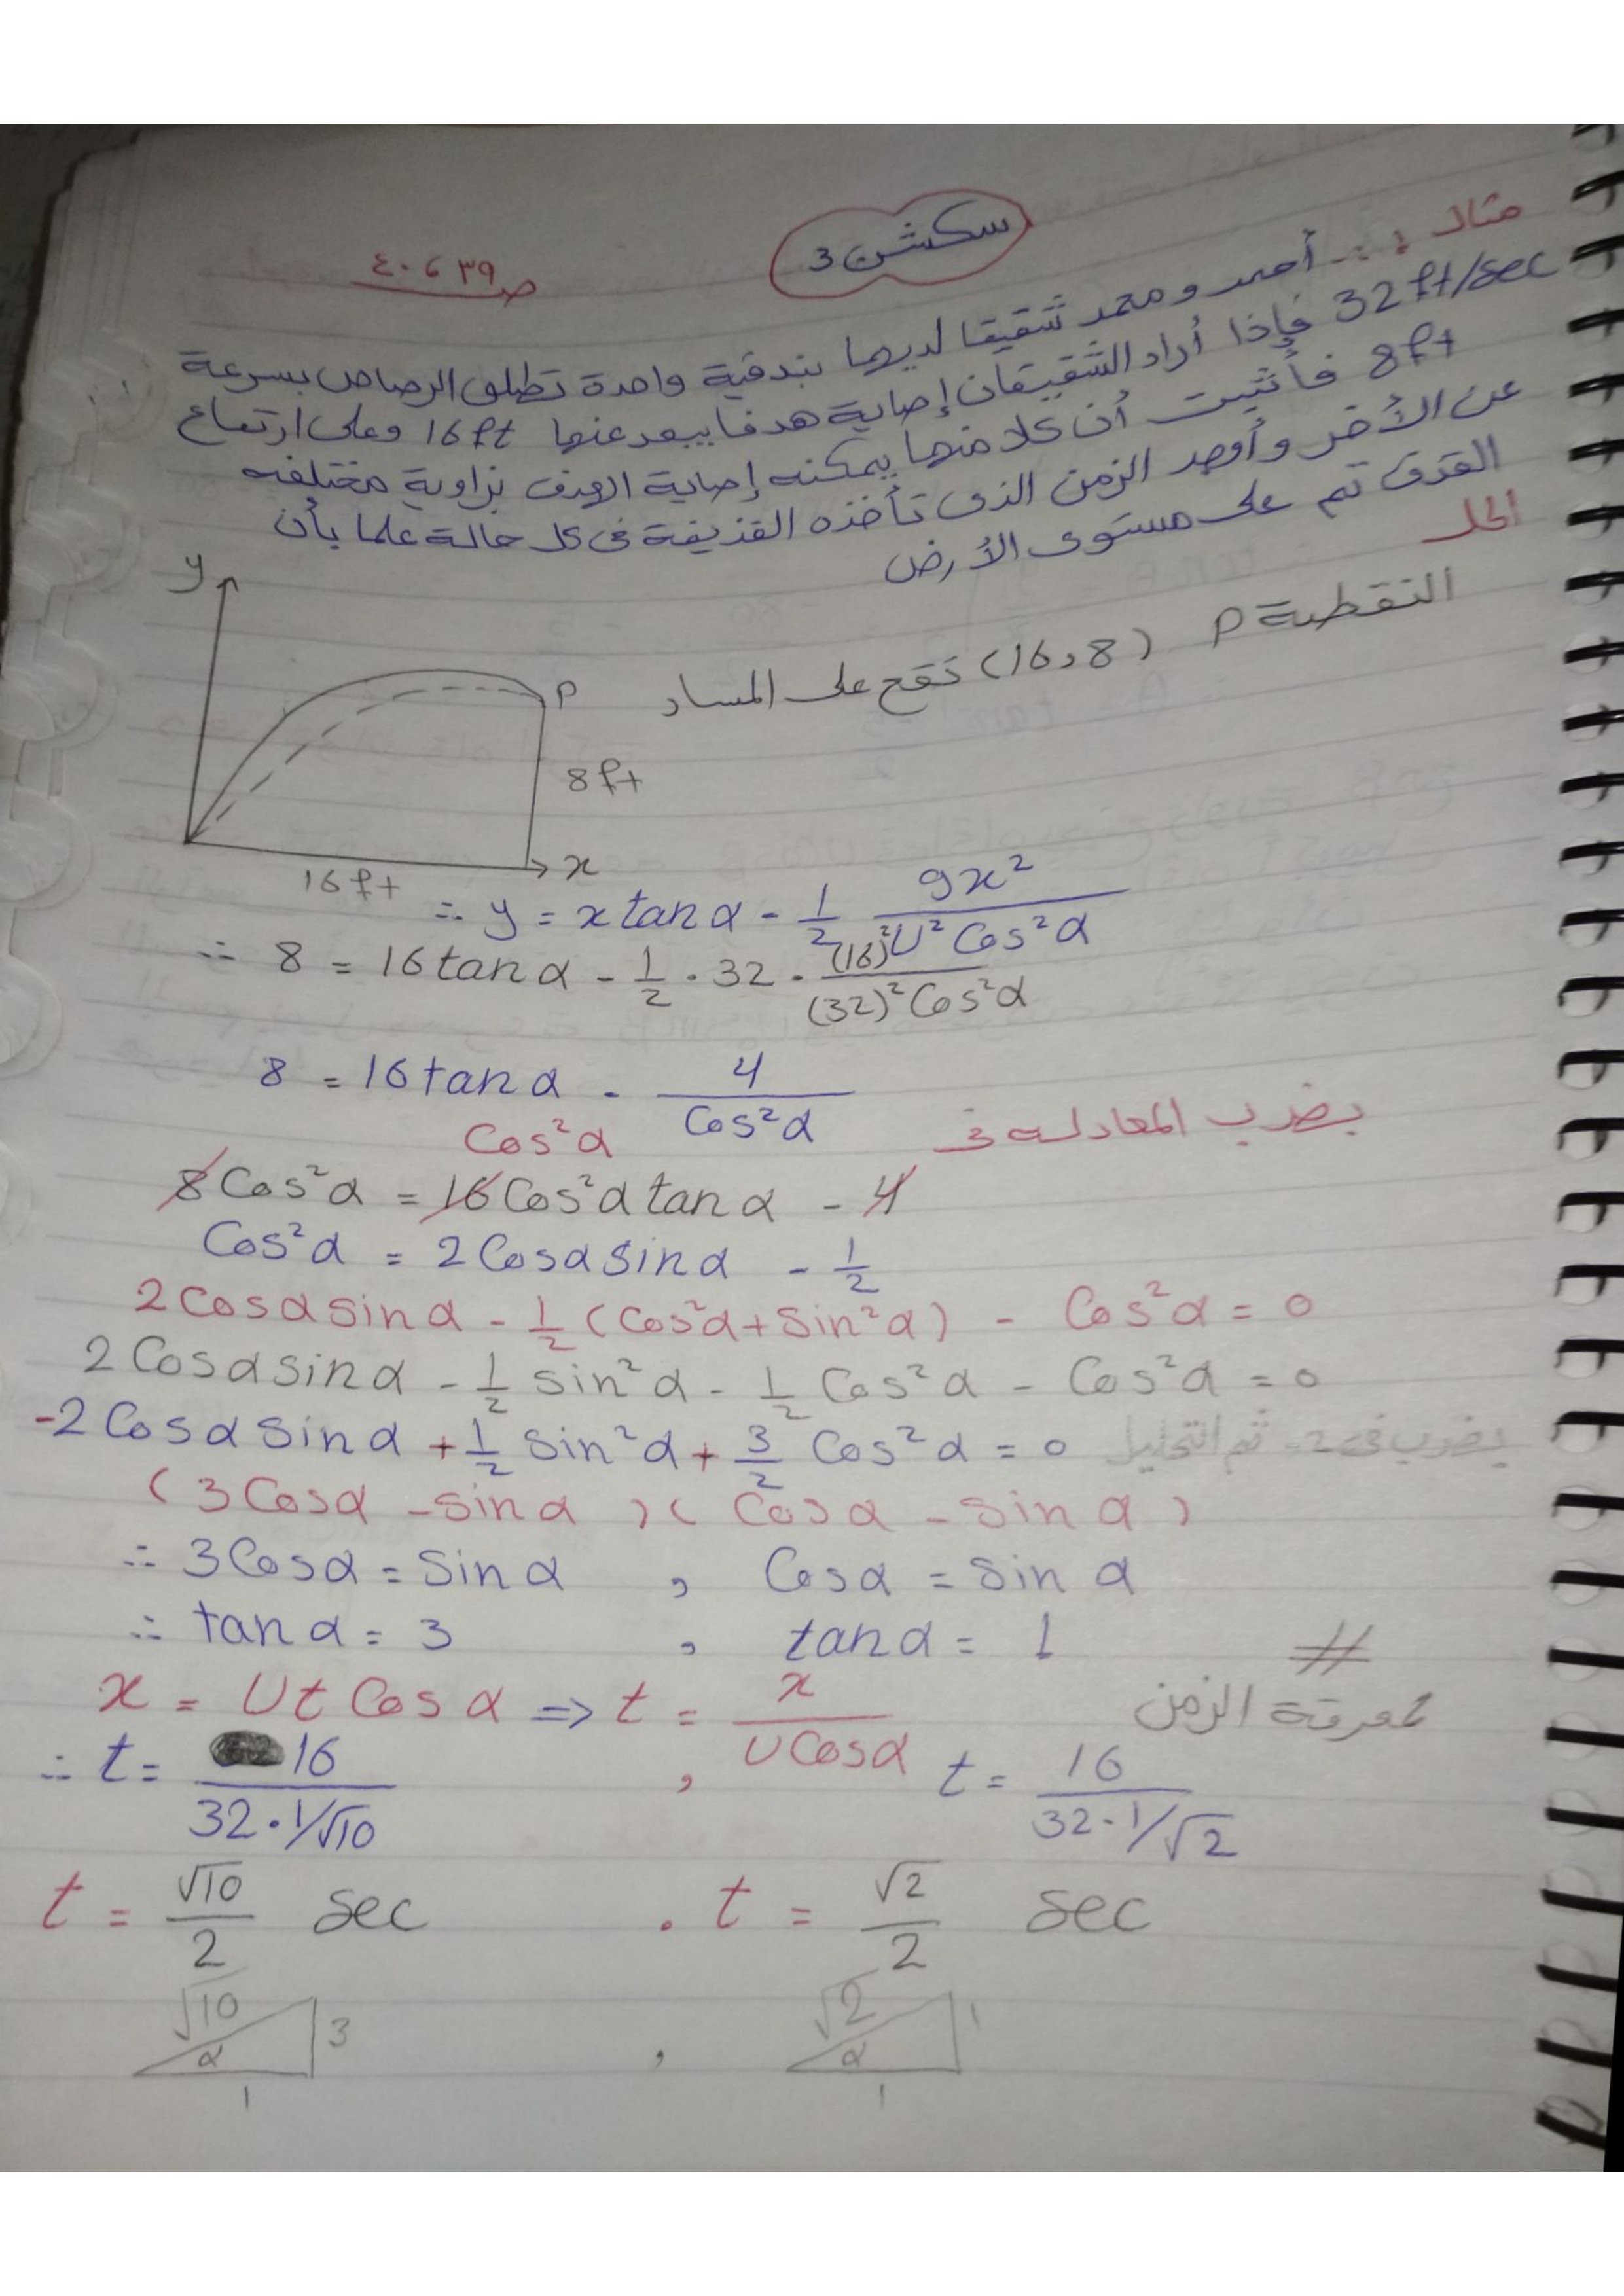 سكشن 3
ص ٣٩ ، ٤٠
مثال : أحمد و محمد شقيقا لديهما بندقية واحدة تطلق الرصاص بسرعة
32 ft/sec فإذا أراد الشقيقان إصابة هدفا يبعد عنهما 16 ft وعلى ارتفاع
8 ft فأثبت أن كلا منهما يمكنه إصابة الهدف بزاوية مختلفه
عن الأخر وأوجد الزمن الذى تأخذه القذيفة فى كل حالة علما بأن
القذف تم على مستوى الأرض
الحل
النقطة P (16, 8) تقع على المسار
y
P
8 ft
x
16 ft
∴ y = x tan α - 1/2 gx²/U² Cos²α
∴ 8 = 16 tan α - 1/2 · 32 · (16)²/(32)² Cos²α
8 = 16 tan α - 4/Cos²α
بضرب المعادلة فى Cos²α
8 Cos²α = 16 Cos²α tan α - 4
Cos²α = 2 Cosα sin α - 1/2
2 Cosα sin α - 1/2 (Cos²α + Sin²α) - Cos²α = 0
2 Cosα sin α - 1/2 Sin²α - 1/2 Cos²α - Cos²α = 0
-2 Cosα Sin α + 1/2 Sin²α + 3/2 Cos²α = 0 بضرب فى 2- ثم التحليل
(3 Cosα - Sin α) (Cosα - Sin α)
∴ 3 Cosα = Sin α , Cosα = Sin α
∴ tan α = 3 , tan α = 1 //
x = Ut Cos α => t = x/U Cosα لمعرفة الزمن
∴ t = 16/32 · 1/√10 , t = 16/32 · 1/√2
t = √10/2 sec . t = √2/2 sec
√10 α 3 1 , √2 α 1 1